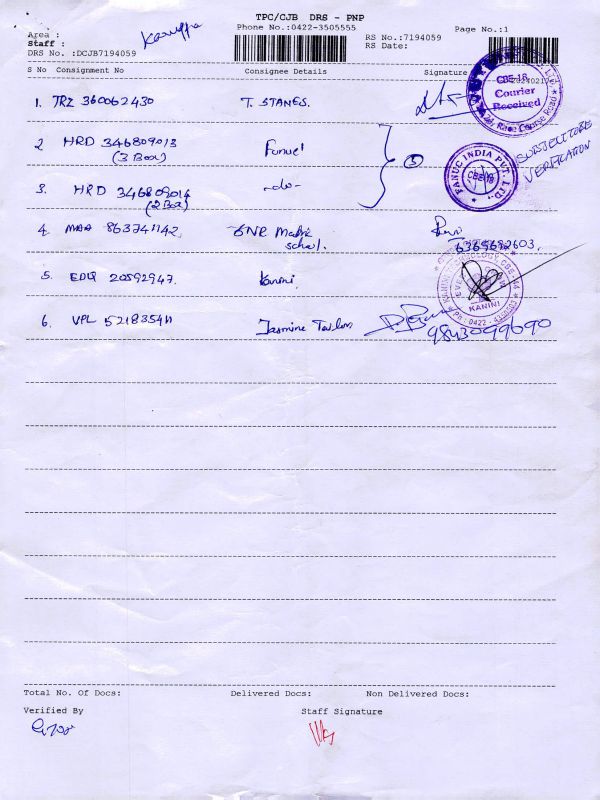 TPC/CJB DRS - PNP
Phone No.:0422-3505555
Page No.:1
Area :
Staff :
DRS No. :DCJB7194059
RS No.:7194059
RS Date:
S No Consignment No Consignee Details Signature
1. TRZ 360062430 T. STANES.
CBE-18
Courier
Received
2 HRD 346809013
(3 Box)
3. HRD 346809014 -do-
(2 Box)
5
FANUC INDIA PVT. LTD.
CBE-18
SUBJECT TO RE
VERIFICATION
4. MAA 863741142 GNR Matric
School.
6369682603.
5. EDQ 20592947. Kanini.
KANINI
6. VPL 521835411 Jasmine Tailors
9843099690
Total No. Of Docs: Delivered Docs: Non Delivered Docs:
Verified By Staff Signature